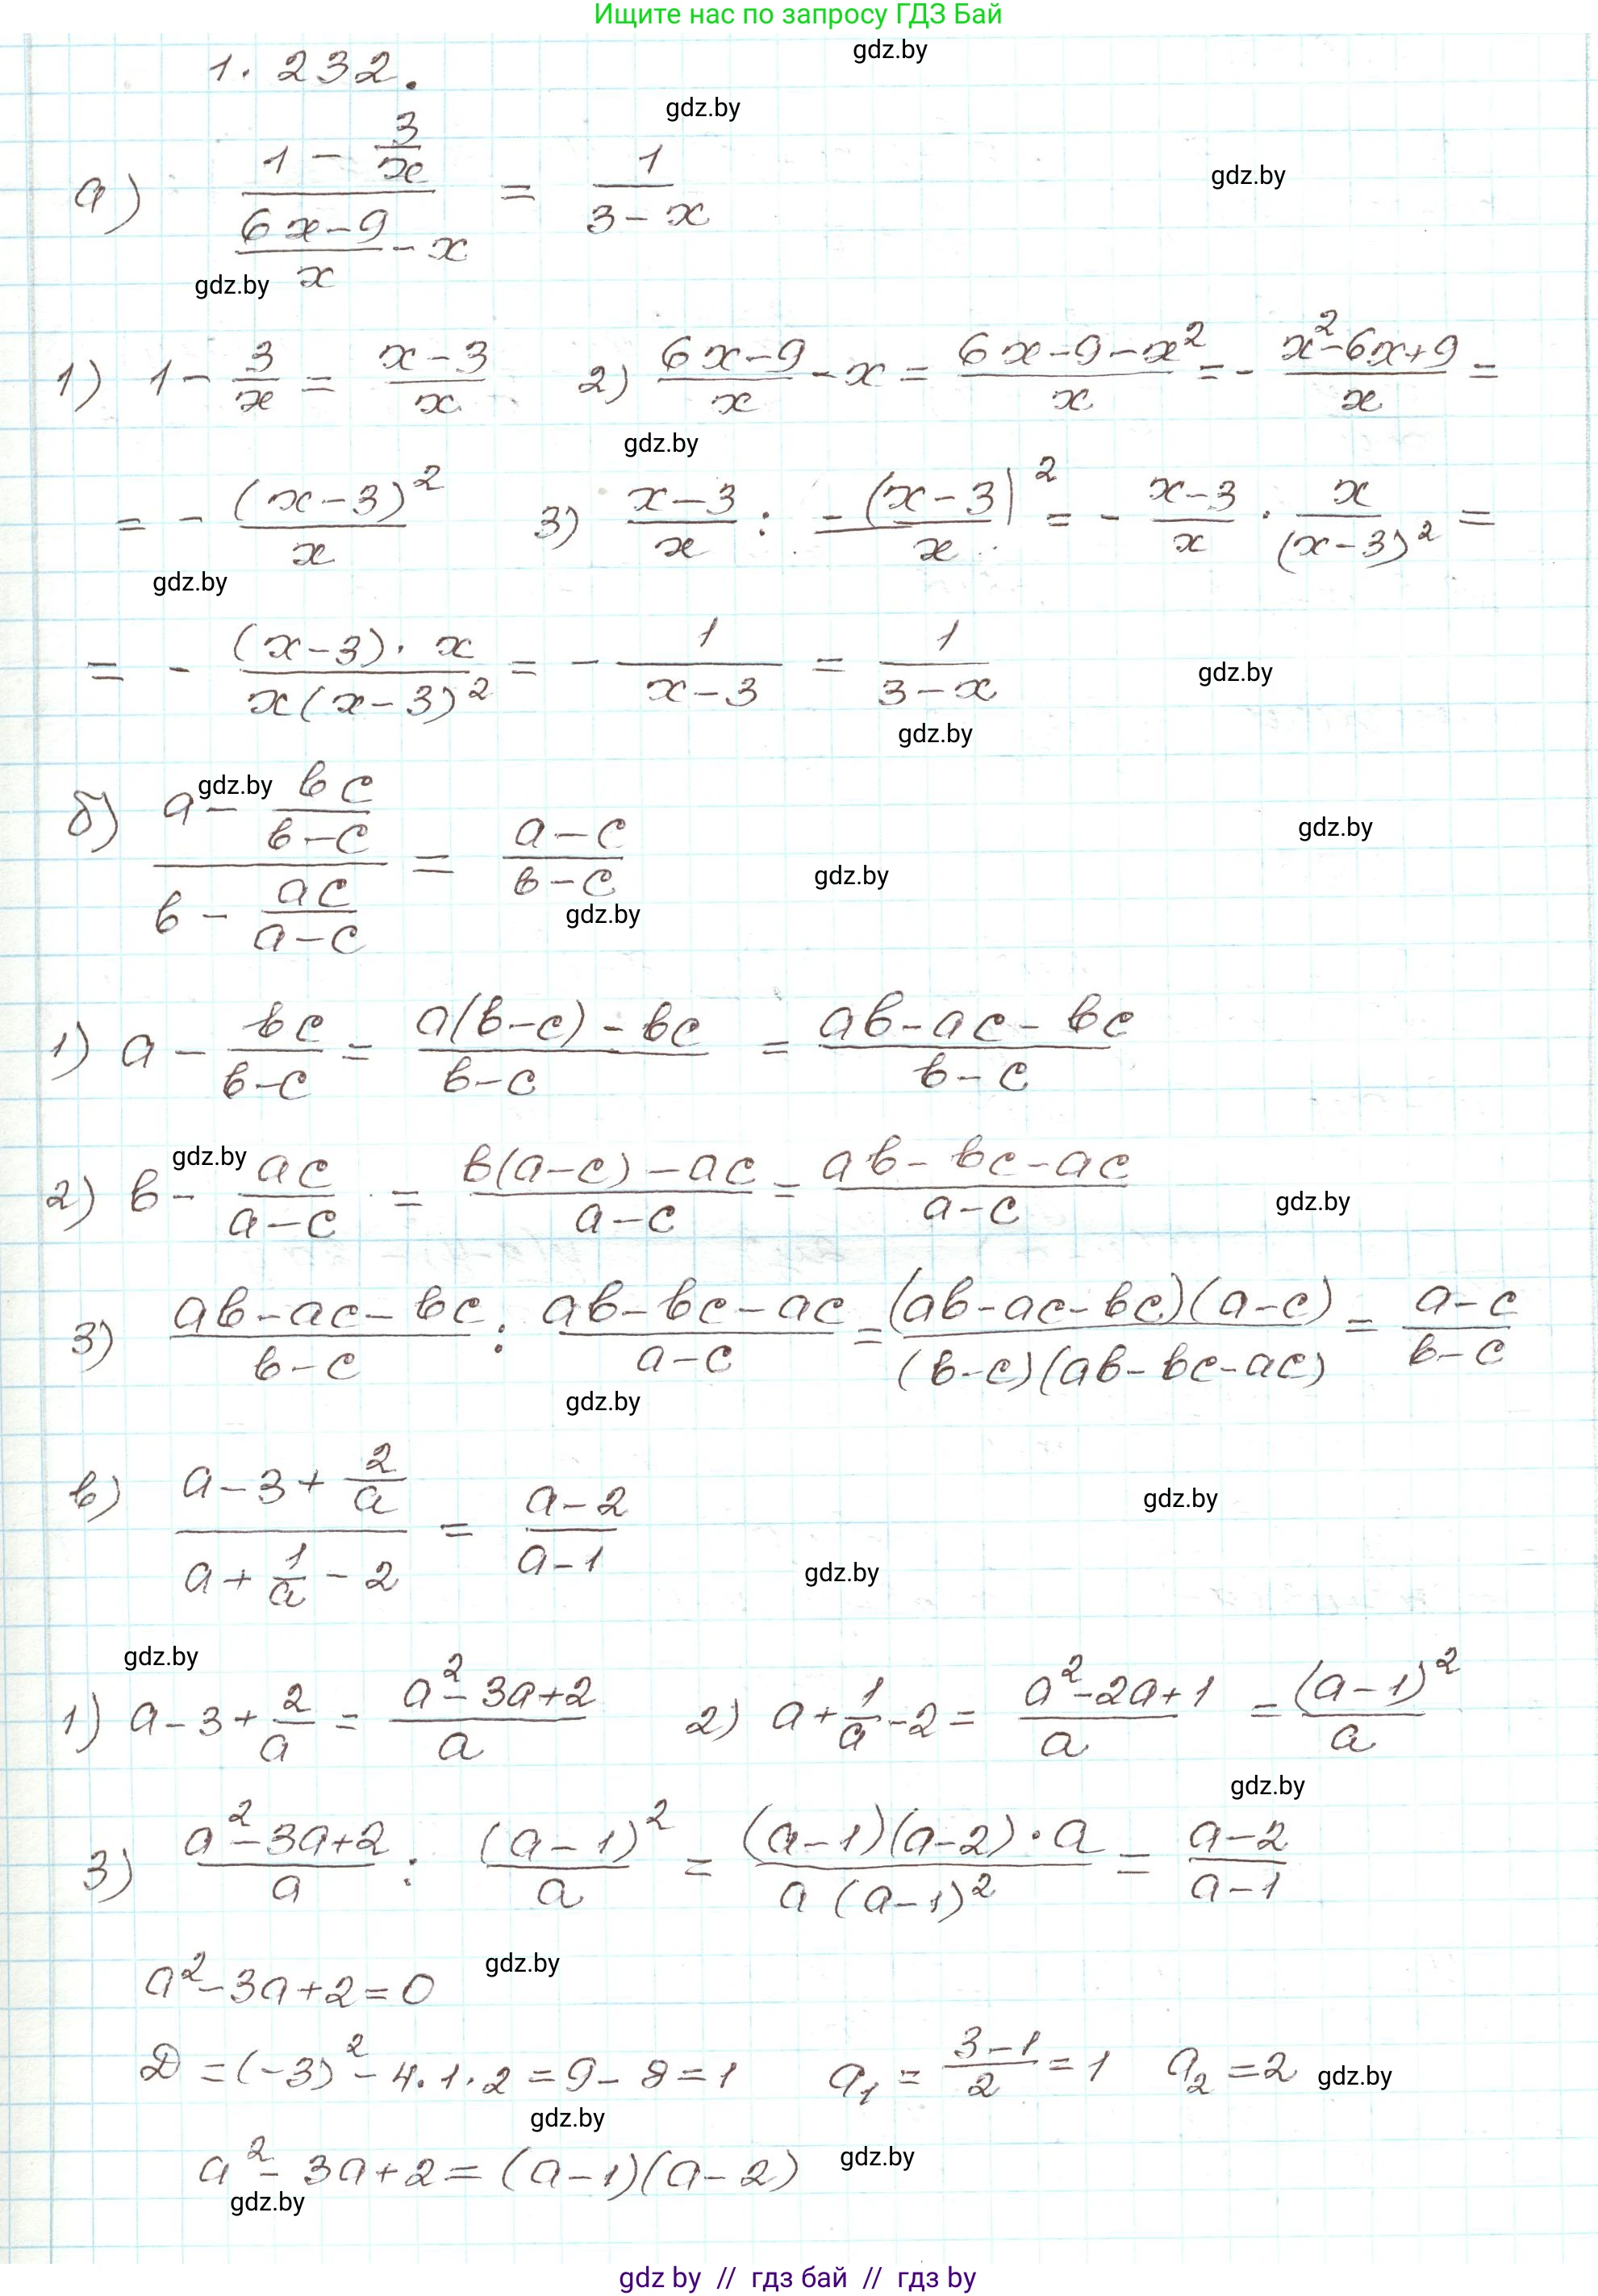 Ищите нас по запросу ГДЗ Бай
gdz.by
1.232.
gdz.by
а) (1 - 3/x) / ((6x-9)/x - x) = 1/(3-x)
gdz.by
gdz.by
1) 1 - 3/x = (x-3)/x 2) (6x-9)/x - x = (6x-9-x²)/x = - (x²-6x+9)/x =
gdz.by
= - (x-3)²/x 3) (x-3)/x : -(x-3)²/x = - (x-3)/x · x/(x-3)² =
gdz.by
= - ((x-3)·x)/(x(x-3)²) = - 1/(x-3) = 1/(3-x)
gdz.by
gdz.by
gdz.by
б) (a - вc/(в-c)) / (в - ac/(a-c)) = (a-c)/(в-c)
gdz.by
gdz.by
gdz.by
1) a - вc/(в-c) = (a(в-c)-вc)/(в-c) = (aв-ac-вc)/(в-c)
gdz.by
2) в - ac/(a-c) = (в(a-c)-ac)/(a-c) = (aв-вc-ac)/(a-c)
gdz.by
3) (aв-ac-вc)/(в-c) : (aв-вc-ac)/(a-c) = ((aв-ac-вc)(a-c))/((в-c)(aв-вc-ac)) = (a-c)/(в-c)
gdz.by
в) (a-3+2/a) / (a+1/a-2) = (a-2)/(a-1)
gdz.by
gdz.by
gdz.by
1) a-3+2/a = (a²-3a+2)/a 2) a+1/a-2 = (a²-2a+1)/a = (a-1)²/a
gdz.by
3) (a²-3a+2)/a : (a-1)²/a = ((a-1)(a-2)·a)/(a(a-1)²) = (a-2)/(a-1)
a²-3a+2=0
gdz.by
D = (-3)²-4·1·2=9-8=1 a₁ = (3-1)/2 = 1 a₂=2
gdz.by
gdz.by
a²-3a+2=(a-1)(a-2)
gdz.by
gdz.by
gdz by // гдз бай // гдз by